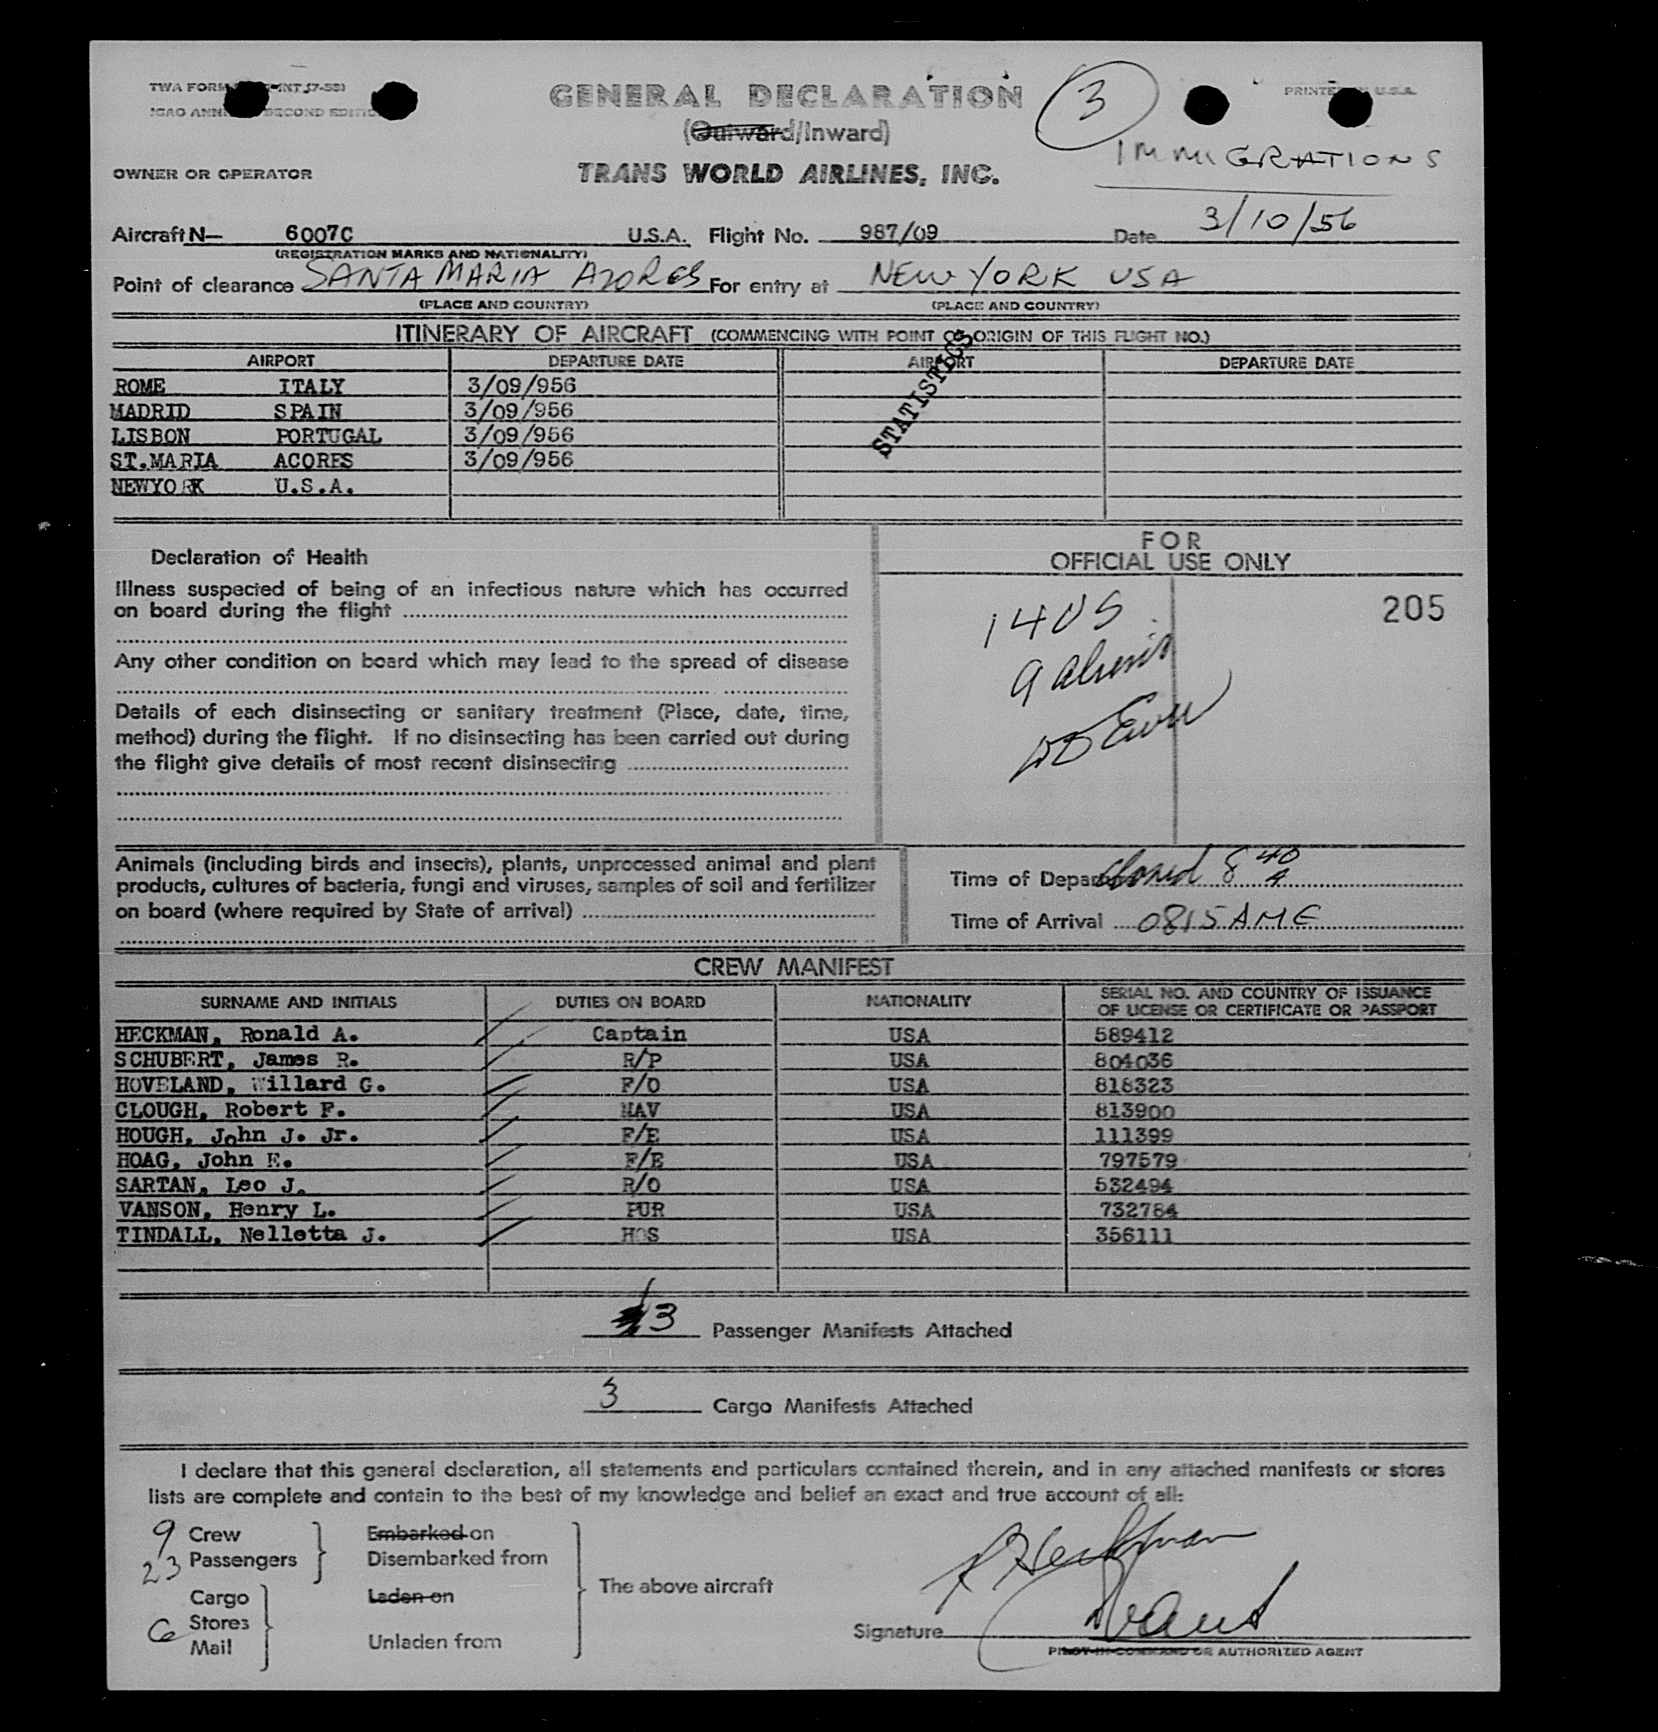 TWA FORM INT (7-53)
GENERAL DECLARATION
3
PRINTED IN U.S.A.
ICAO ANNEX SECOND EDITION
(Outward/Inward)
IMMIGRATIONS
OWNER OR OPERATOR
TRANS WORLD AIRLINES, INC.
Aircraft N— 6007C U.S.A. Flight No. 987/09 Date 3/10/56
(REGISTRATION MARKS AND NATIONALITY)
Point of clearance SANTA MARIA AZORES For entry at NEW YORK USA
(PLACE AND COUNTRY) (PLACE AND COUNTRY)
ITINERARY OF AIRCRAFT (COMMENCING WITH POINT OF ORIGIN OF THIS FLIGHT NO.)
AIRPORT DEPARTURE DATE AIRPORT DEPARTURE DATE
STATISTICS
ROME ITALY 3/09/956
MADRID SPAIN 3/09/956
LISBON PORTUGAL 3/09/956
ST.MARIA ACORES 3/09/956
NEWYORK U.S.A.
Declaration of Health
Illness suspected of being of an infectious nature which has occurred
on board during the flight
Any other condition on board which may lead to the spread of disease
Details of each disinsecting or sanitary treatment (Place, date, time,
method) during the flight. If no disinsecting has been carried out during
the flight give details of most recent disinsecting
FOR
OFFICIAL USE ONLY
205
14 US
9 aliens
Animals (including birds and insects), plants, unprocessed animal and plant
products, cultures of bacteria, fungi and viruses, samples of soil and fertilizer
on board (where required by State of arrival)
Time of Departure closed 8 40 A
Time of Arrival 0815 AME
CREW MANIFEST
SURNAME AND INITIALS DUTIES ON BOARD NATIONALITY SERIAL NO. AND COUNTRY OF ISSUANCE
OF LICENSE OR CERTIFICATE OR PASSPORT
HECKMAN, Ronald A. Captain USA 589412
SCHUBERT, James R. R/P USA 804036
HOVELAND, Willard G. F/O USA 818323
CLOUGH, Robert F. NAV USA 813900
HOUGH, John J. Jr. F/E USA 111399
HOAG, John E. F/E USA 797579
SARTAN, Leo J. R/O USA 532494
VANSON, Henry L. PUR USA 732784
TINDALL, Nelletta J. HOS USA 356111
3 Passenger Manifests Attached
3 Cargo Manifests Attached
I declare that this general declaration, all statements and particulars contained therein, and in any attached manifests or stores
lists are complete and contain to the best of my knowledge and belief an exact and true account of all:
9 Crew Embarked on
23 Passengers Disembarked from
The above aircraft
Cargo Laden on
6 Stores
Mail Unladen from
R Heckman
Signature
PILOT-IN-COMMAND OR AUTHORIZED AGENT